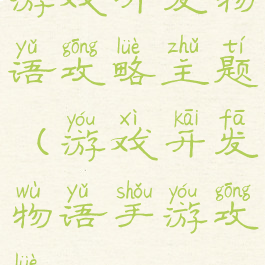 游戏开发物
yǔ gōng lüè zhǔ tí
语攻略主题
yóu xì kāi fā
（游戏开发
wù yǔ shǒu yóu gōng
物语手游攻
lüè